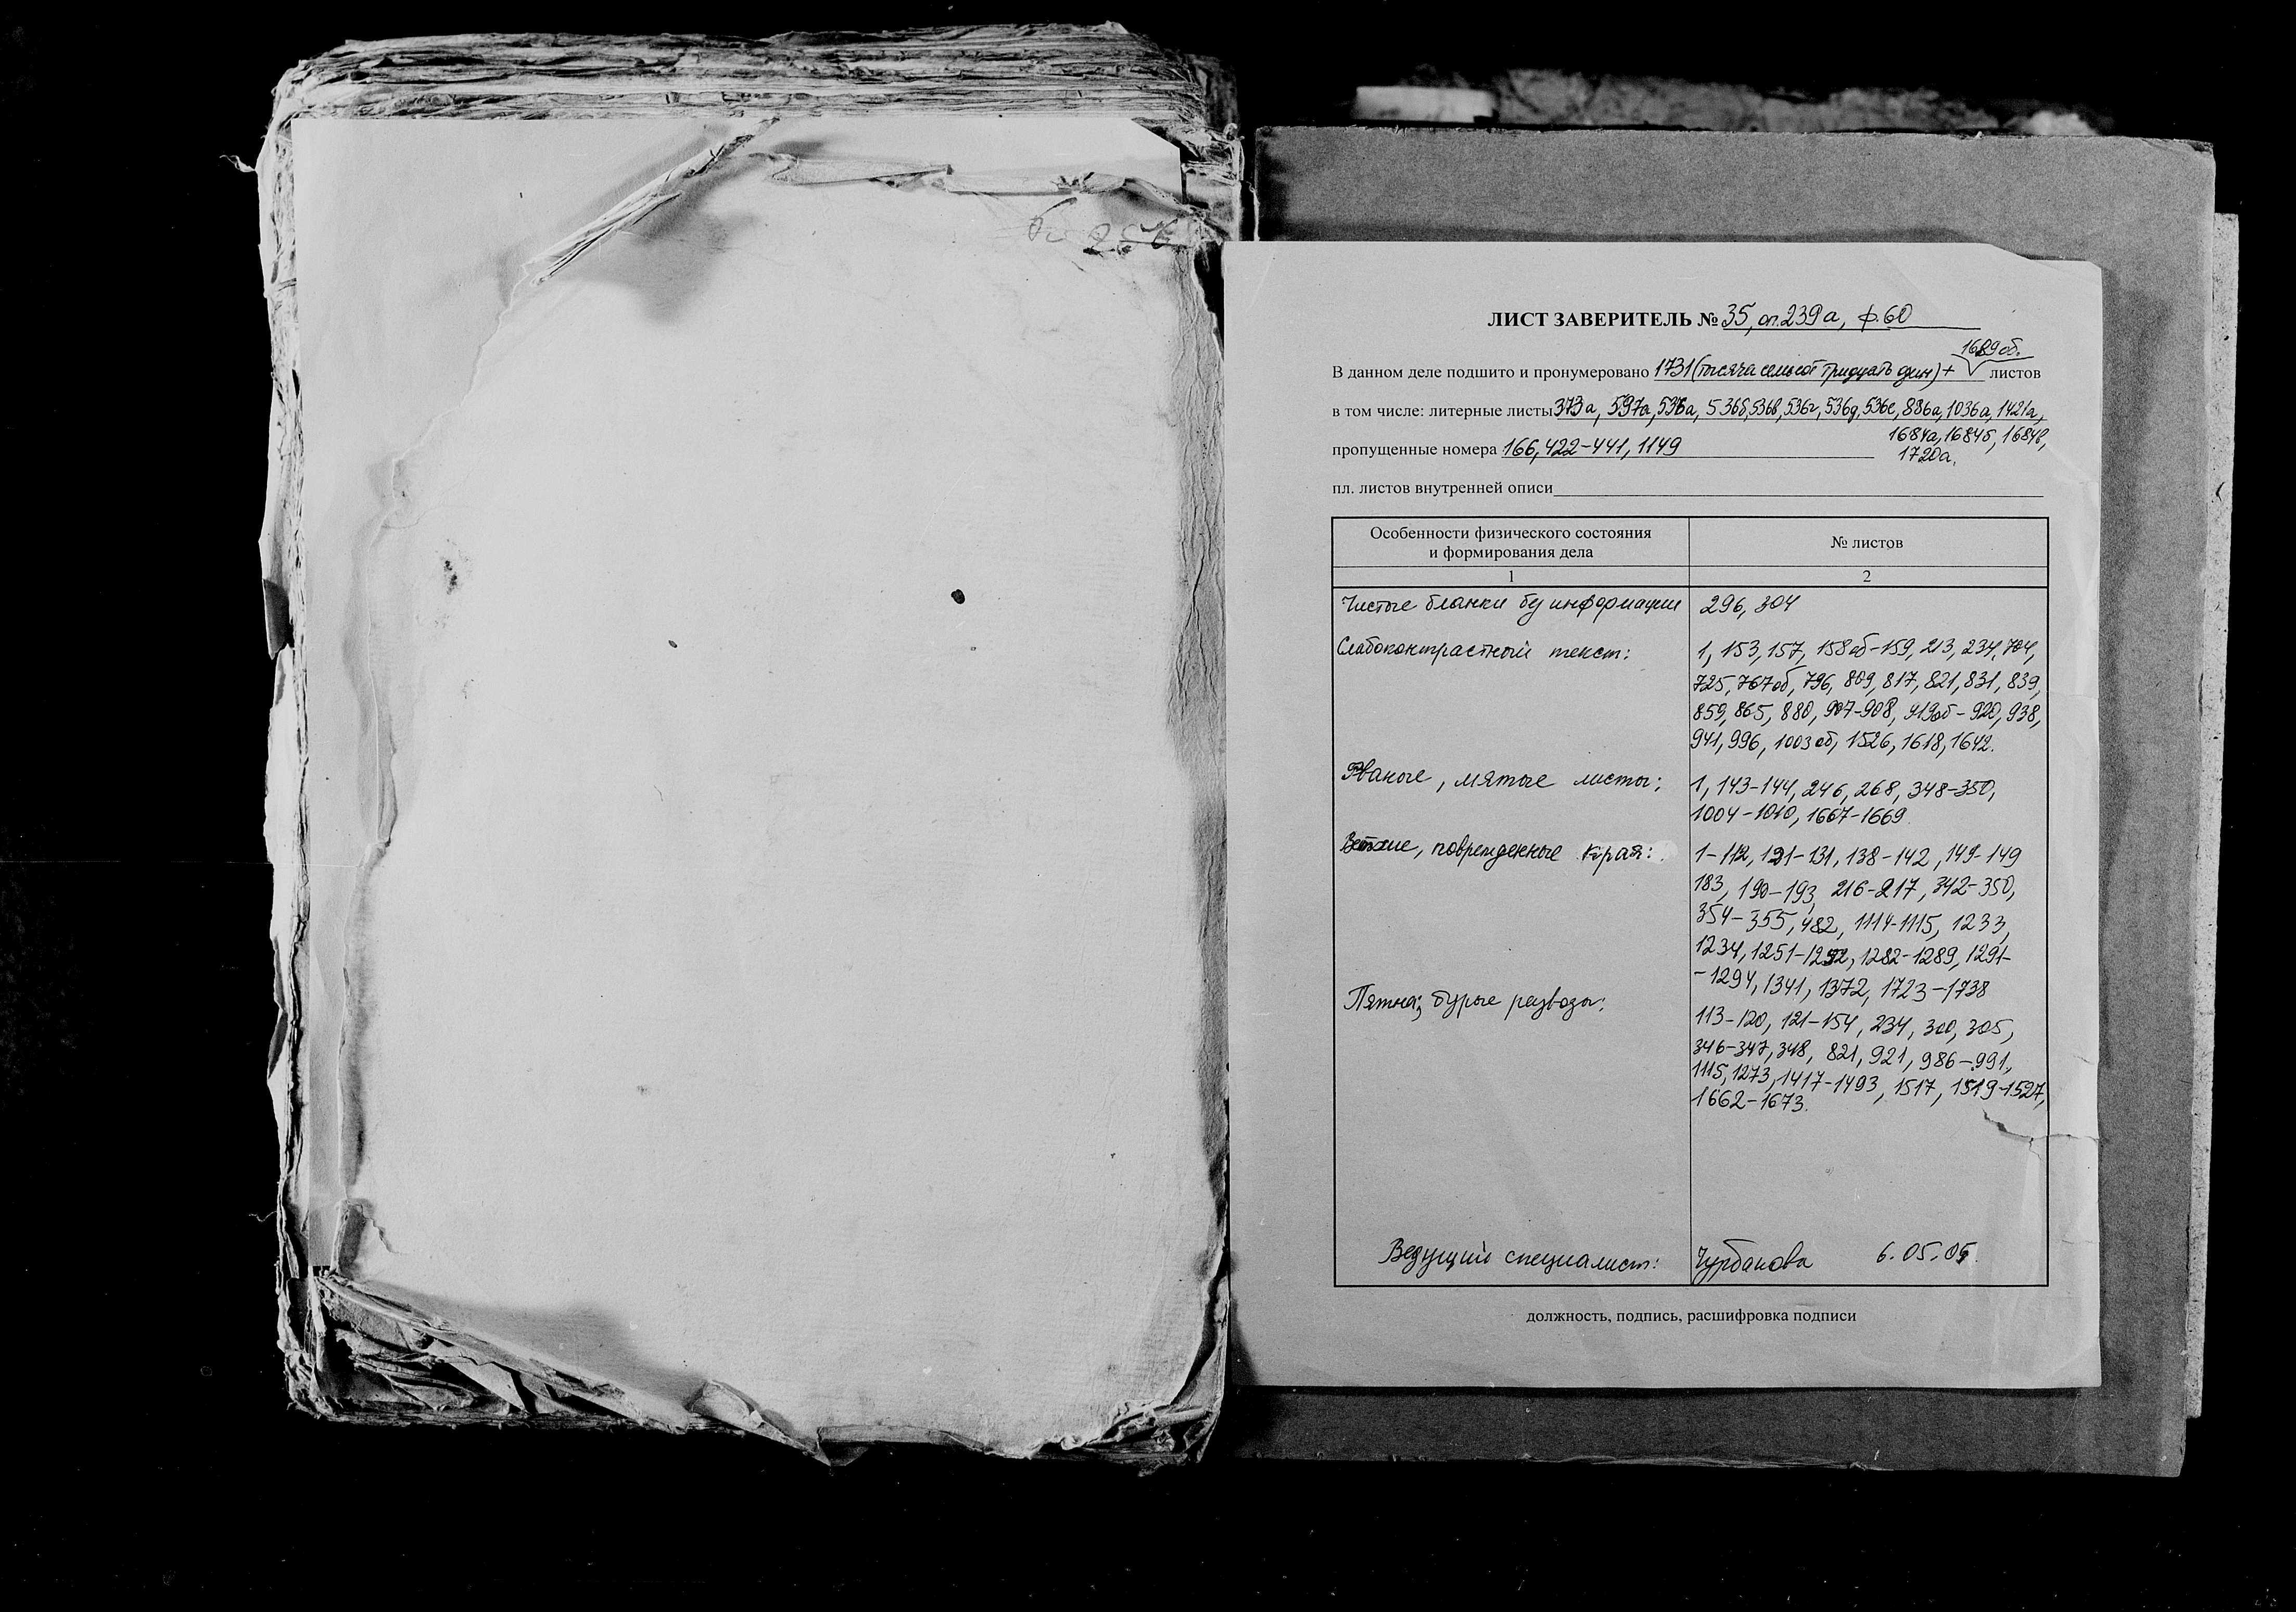 ЛИСТ ЗАВЕРИТЕЛЬ № 35, оп.239а, ф.60
1689об.
В данном деле подшито и пронумеровано 1731(тысяча семьсот тридцать один)+ листов
в том числе: литерные листы 373а, 597а, 536а, 536б, 536в, 536г, 536д, 536е, 886а, 1036а, 1421а,
1684а, 1684б, 1684в,
пропущенные номера 166, 422-441, 1149
1720а.
пл. листов внутренней описи
Особенности физического состояния
и формирования дела
№ листов
1 2
Чистые бланки бз информации 296, 304
Слабоконтрастный текст: 1, 153, 157, 158об-159, 213, 234, 704,
725, 767об, 796, 809, 817, 821, 831, 839,
859, 865, 880, 907-908, 919об-920, 938,
941, 996, 1003об, 1526, 1618, 1642.
Рваные, мятые листы: 1, 143-144, 246, 268, 348-350,
1004-1010, 1667-1669.
Ветхие, поврежденные края: 1-112, 121-131, 138-142, 149-149
183, 190-193, 216-217, 342-350,
354-355, 482, 1114-1115, 1233,
1234, 1251-1252, 1282-1289, 1291-
-1294, 1341, 1372, 1723-1738
Пятна, бурые разводы: 113-120, 121-154, 234, 300, 305,
346-347, 348, 821, 921, 986-991,
1115, 1273, 1417-1493, 1517, 1519-1527,
1662-1673.
Ведущий специалист: Чурбанова 6.05.05
должность, подпись, расшифровка подписи